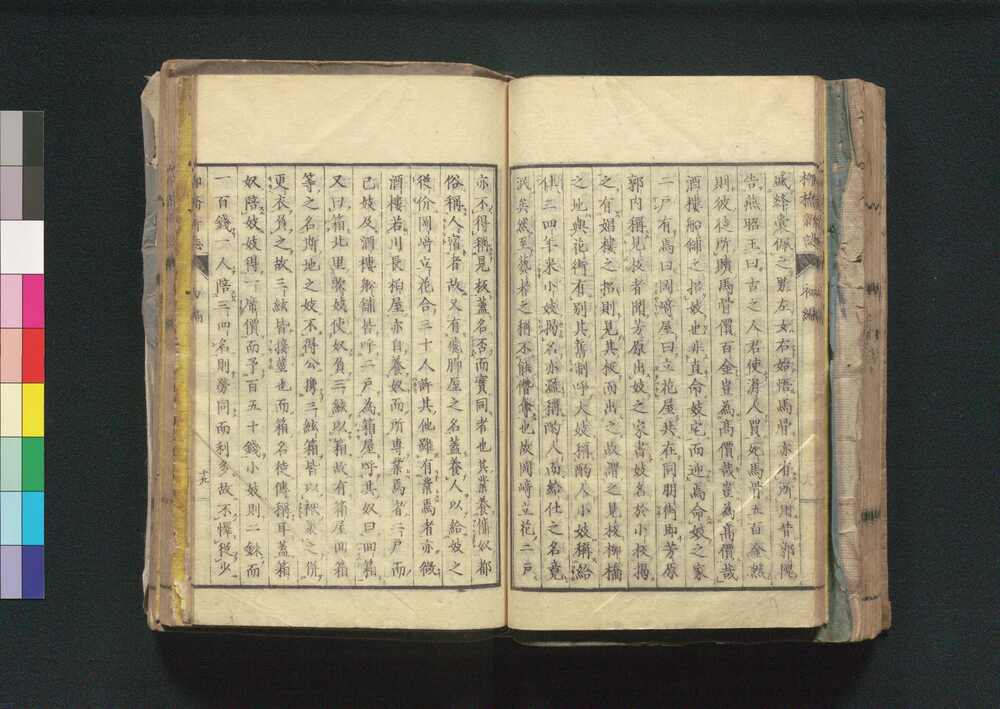 柳橋新誌 初編
戚絳囊佩之點左支右焔悟馬骨亦有所用昔郭隗
告燕昭王曰古之人君使涓人買死馬骨五百金然
則彼徒所購馬骨價百金豈為高價哉豈為高價哉
酒樓船舗之招妓也非直命妓宅而迎焉命妓之家
二戶有焉曰岡﨑屋曰立花屋共在同朋街即芳原
郭內稱見板者聞芳原出妓之家書妓名於小板揭
之有娼樓之招則見其板而出之故謂之見板柳橋
之地與花街有別其舊制呼大妓稱酌人小妓稱給
仕三四年來小妓 名亦 稱酌人而給仕之名竟
矣然至藝者之稱不能僭 也故岡﨑立花二戶
亦不得稱見板蓋名否而實同者也其業養傭奴都
俗稱人宿者故又有飛脚屋之名蓋養人以給妓之
從份岡﨑立花合三十人許其他雖有業焉者亦微
酒樓若川長柏屋亦自養奴而所專業焉者二戶而
已妓及酒樓船舗皆呼二戶為箱屋呼其奴曰回箱
又曰箱北里歌妓使奴負三絃以箱故有箱屋回箱
等之名斯地之妓不得公携三絃箱皆以 之併
更衣負之故三絃皆接 也而箱名徒傳稱耳蓋箱
奴陪妓妓得一席價而予百五十錢小妓則二銖而
一百錢一人陪三四名則勞同而利多故不憚從少
十九